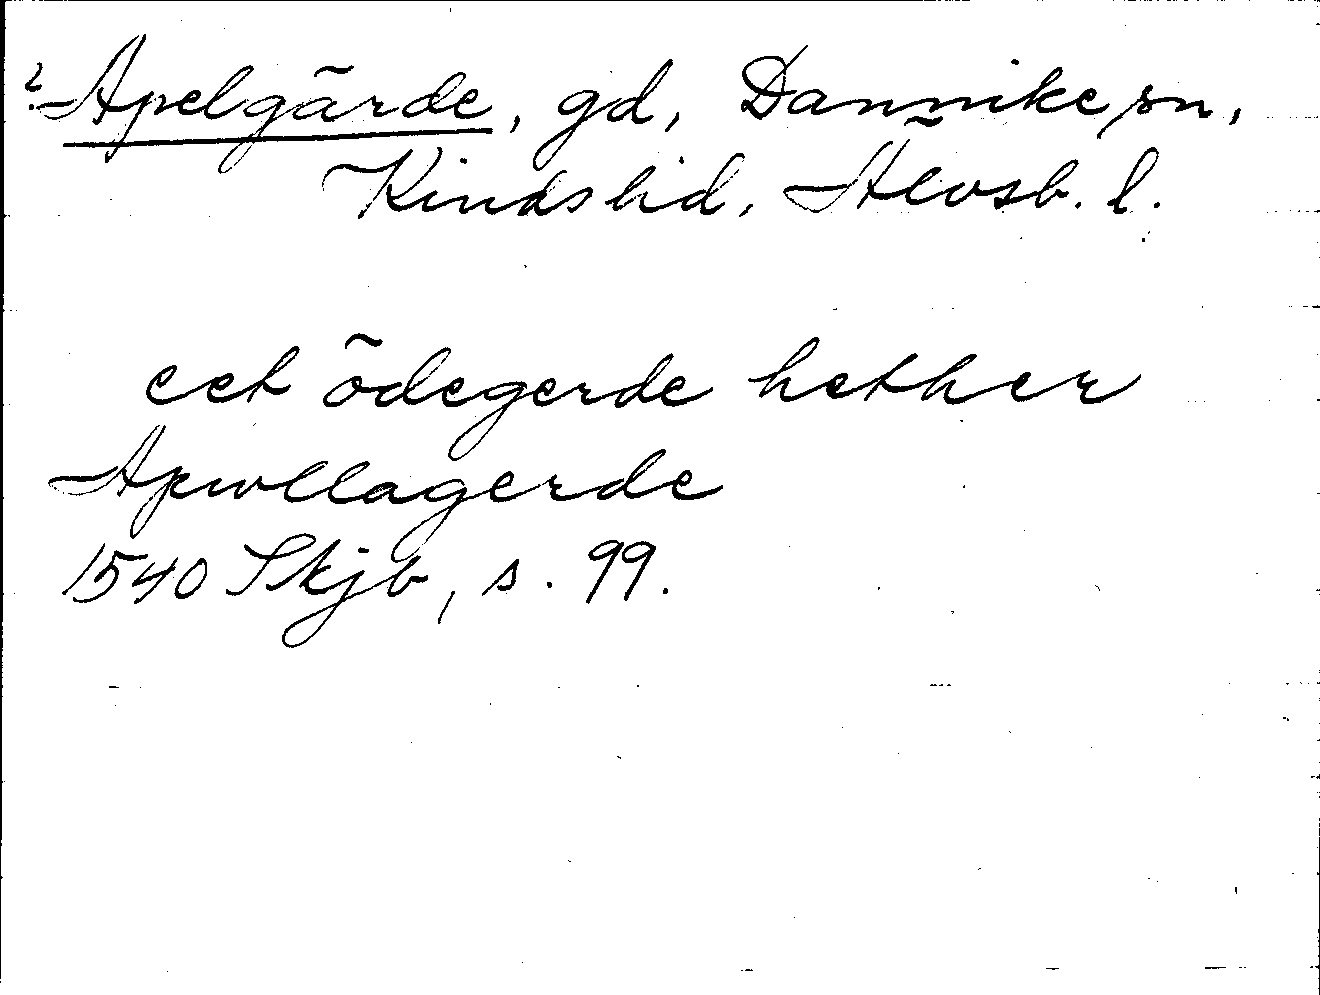 ? Apelgärde, gd, Dannike sn,
Kinds hd, Älvsb. l.
eet ödegerde hether
Apwllagerde
1540 Skjb, s. 99.